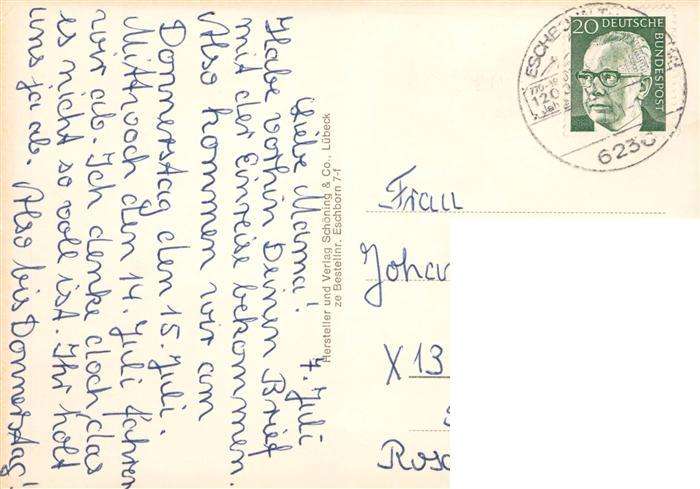 4. Juli
Liebe Mama!
Habe vorhin Deinen Brief
mit der Einreise bekommen.
Also kommen wir am
Donnerstag den 15. Juli.
Mittwoch den 14. Juli fahren
wir ab. Ich denke doch das
es nicht so voll ist. Ihr holt
uns ja ab. Also bis Donnerstag!
Hersteller und Verlag Schöning & Co., Lübeck
ze Bestellnr. Eschborn 7-f
20 DEUTSCHE
BUNDESPOST
623
Frau
Johan
X 13
Ros